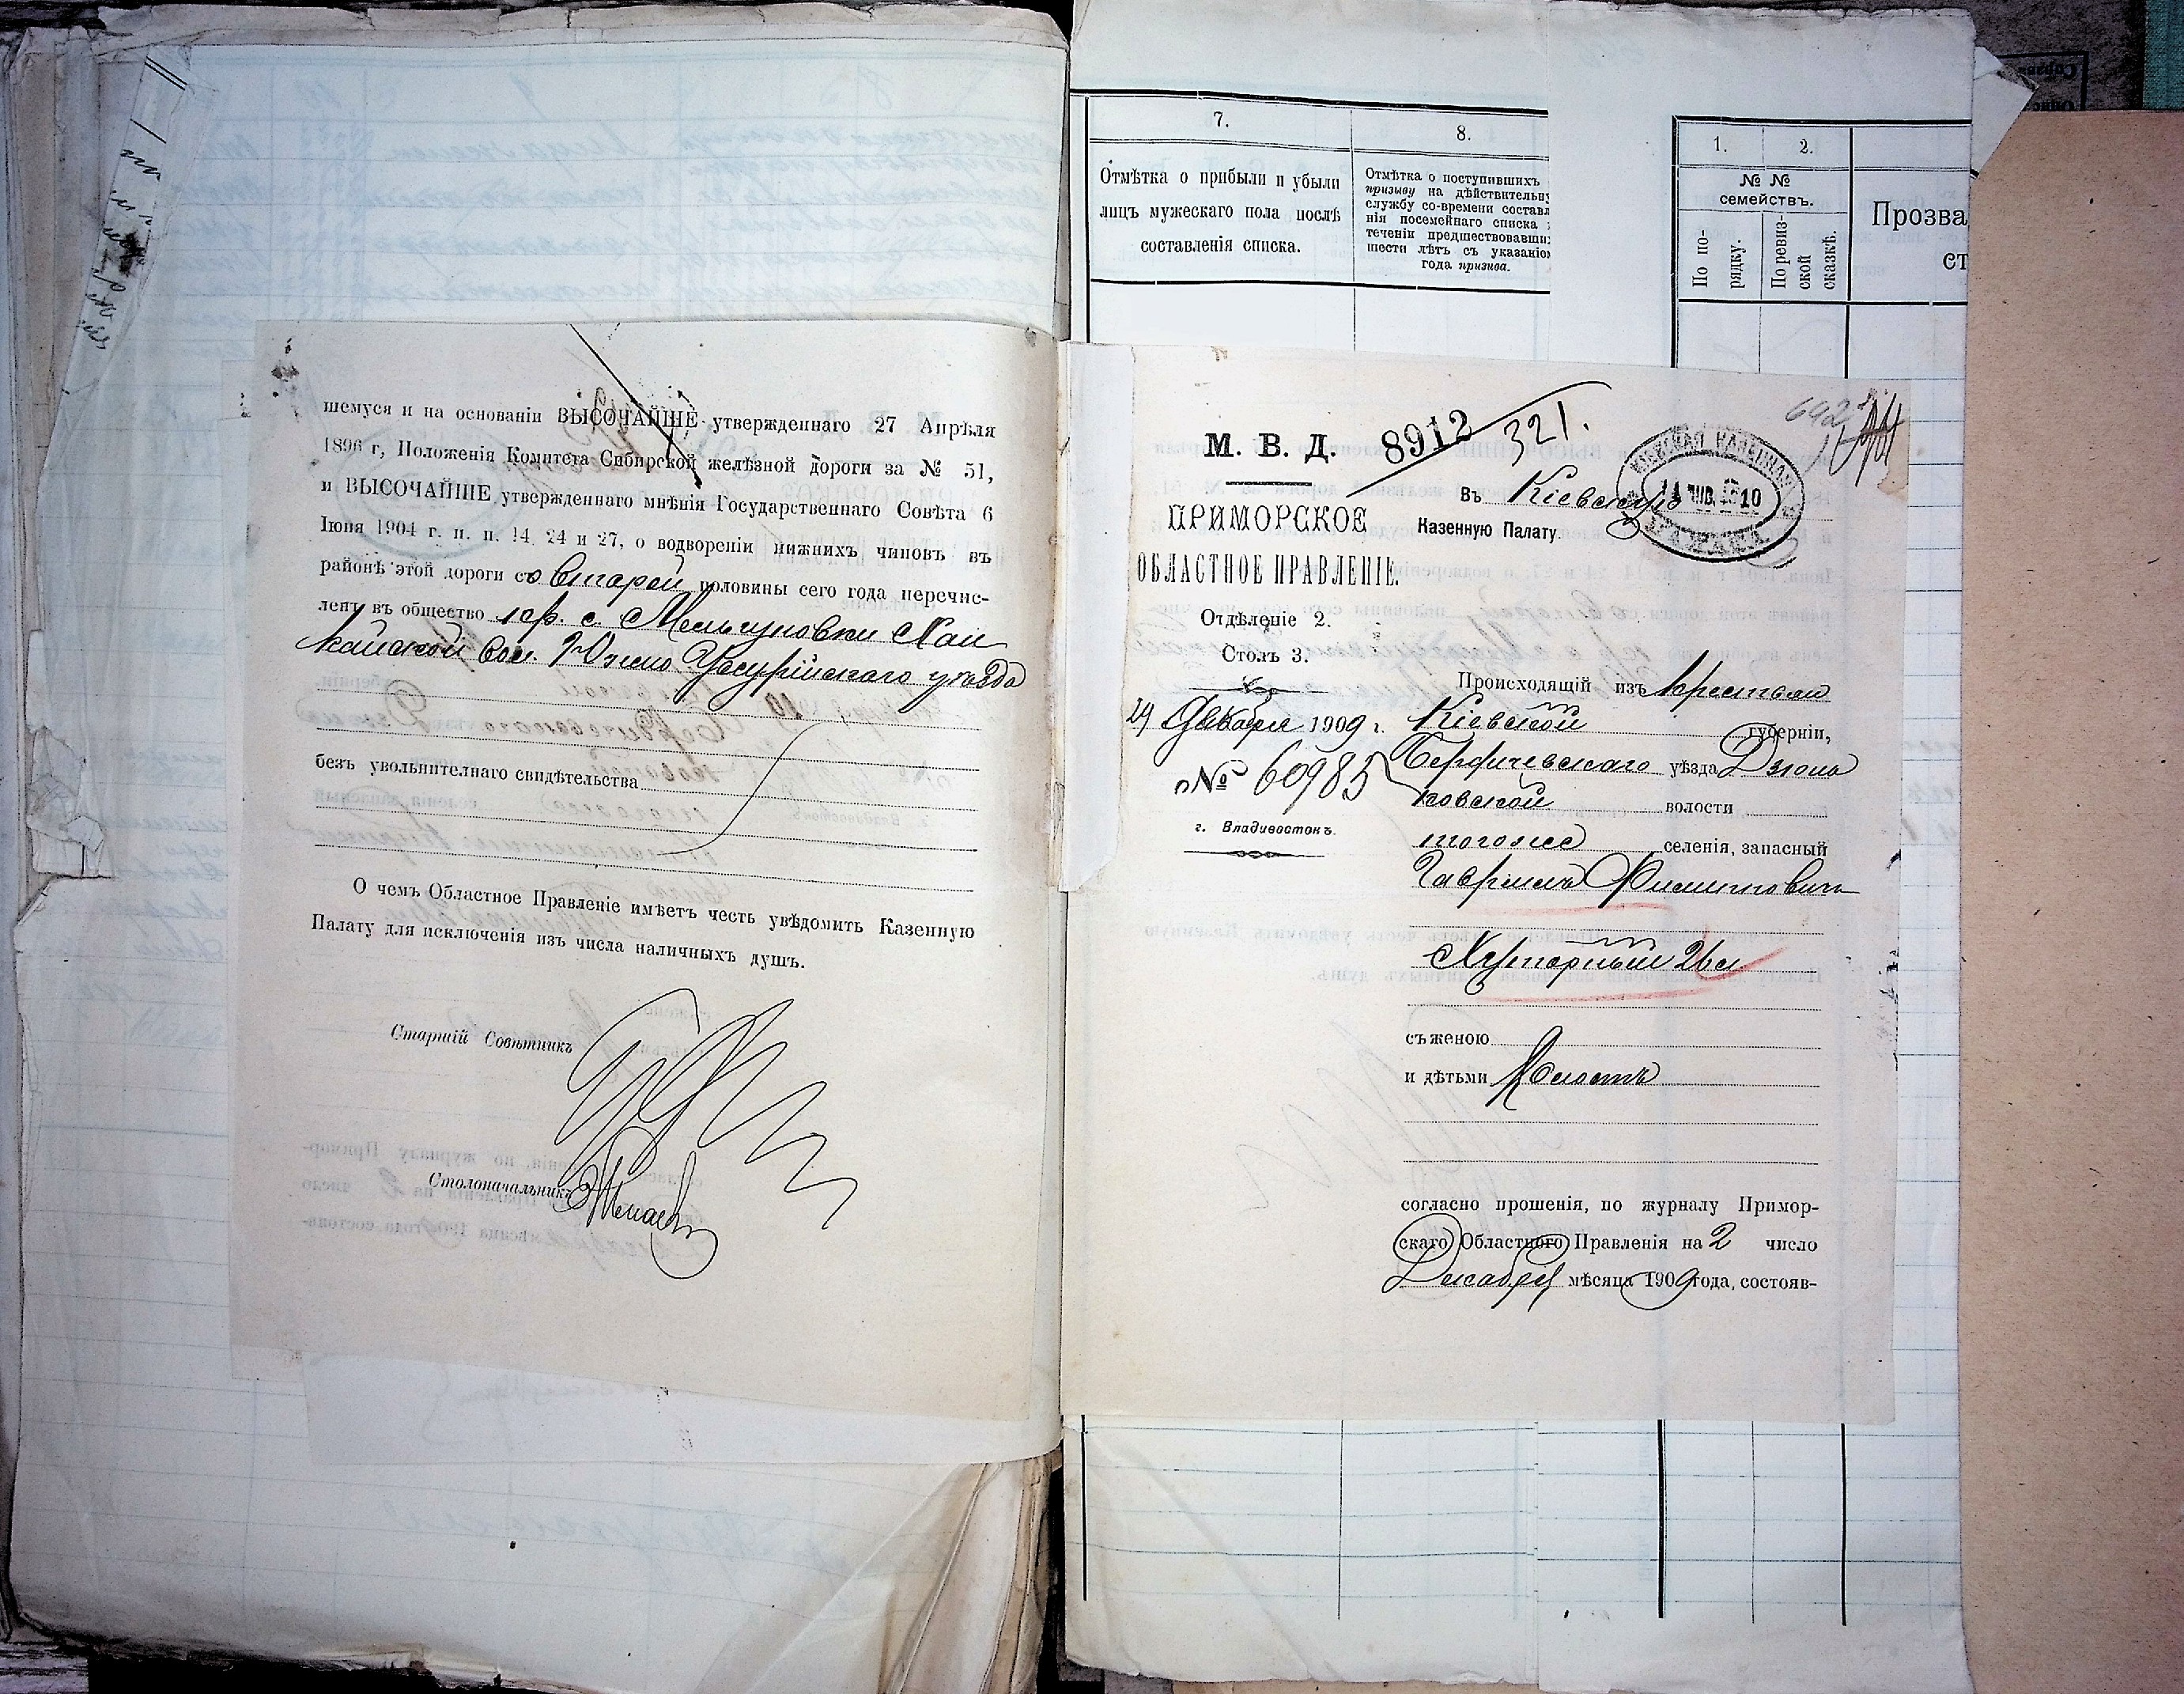 шемуся и на основаніи ВЫСОЧАЙШЕ утвержденнаго 27 Апрѣля
1896 г, Положенія Комитета Сибирской желѣзной дороги за № 51,
и ВЫСОЧАЙШЕ утвержденнаго мнѣнія Государственнаго Совѣта 6
Іюня 1904 г. п. п. 14, 24 и 27, о водвореніи нижнихъ чиновъ въ
районѣ этой дороги со второй половины сего года перечис-
ленъ въ общество кр. с. Мельгуновки Хан
кайской вол. Южно Уссурійскаго уѣзда
безъ увольнителнаго свидѣтельства
О чемъ Областное Правленіе имѣетъ честь увѣдомить Казенную
Палату для исключенія изъ числа наличныхъ душъ.
Старшій Совѣтникъ
Столоначальникъ
7.
8.
Отмѣтка о прибыли и убыли
лицъ мужескаго пола послѣ
составленія списка.
Отмѣтка о поступившихъ
призыву на дѣйствительну
службу со-времени составл
нія посемейнаго списка
теченіи предшествовавши
шести лѣтъ съ указаніо
года призыва.
1.
2.
№ №
семействъ.
По по-
рядку.
По ревиз-
ской
сказкѣ.
Прозва
ст
М. В. Д.
8912
321.
692
ПРИМОРСКОЕ
ОБЛАСТНОЕ ПРАВЛЕНІЕ.
Отдѣленіе 2.
Столъ 3.
29 Декабря 1909 г.
№ 60985
г. Владивостокъ.
Въ Кіевскую
Казенную Палату.
КІЕВСКАЯ КАЗЕННАЯ
14 ЯНВ. 1910
ПАЛАТА
Происходящій изъ крестьян
Кіевской губерніи,
Бердичевскаго уѣзда Дзюнь
ковской волости
тогоже селенія, запасный
Гавріилъ Филиповичъ
Хуторный 2вл
съ женою
и дѣтьми холостъ
согласно прошенія, по журналу Примор-
скаго Областного Правленія на 2 число
Декабря мѣсяца 1909 года, состояв-